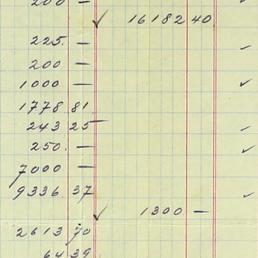 200 —
✓ 16182 40
225. — ✓
200 —
1000 — ✓
1778 81
243 25 ✓
250. — ✓
7000 —
9336. 37 ✓
✓ 1300 —
2613 70
64 39